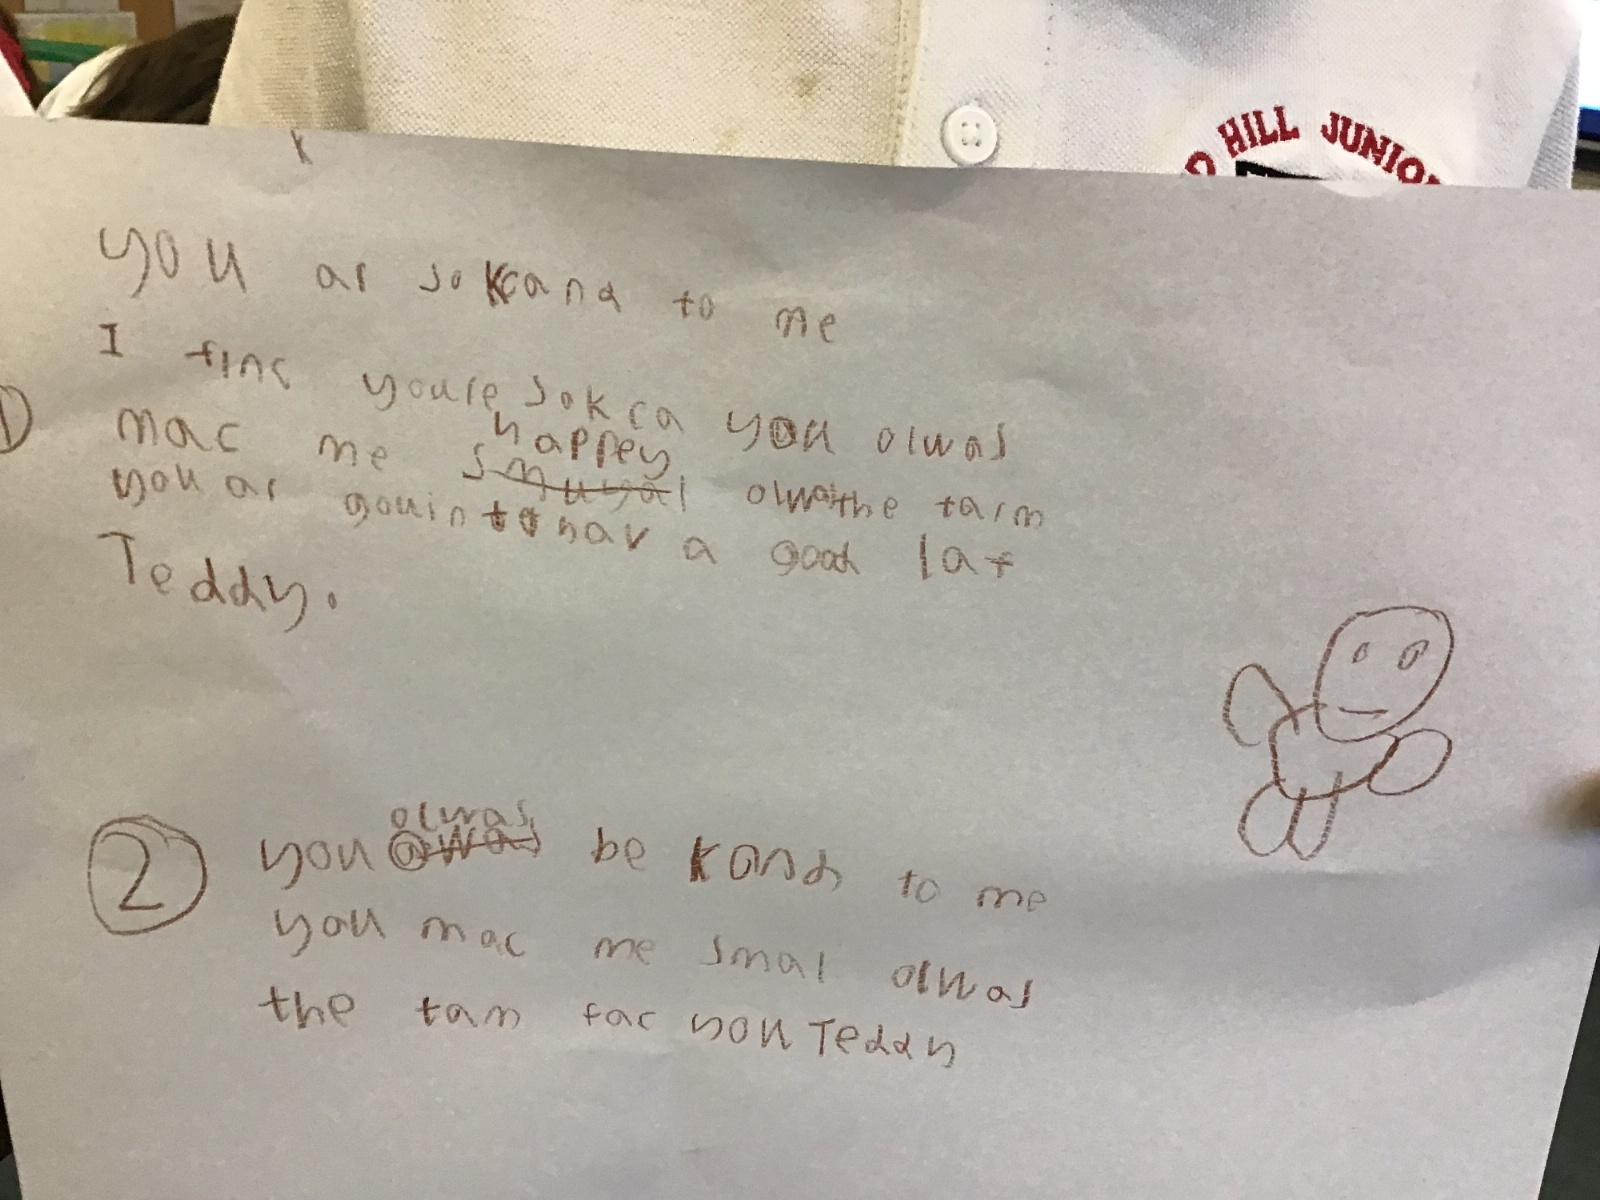 HILL JUNIO
K
you ar so kand to me
I finc youre so kca you olwas
① mac me happey smuyal olwas the taim
you ar gouin to hav a good laf
Teddy.
② you olwas be kand to me
you mac me smal olwas
the tam fac you Teddy